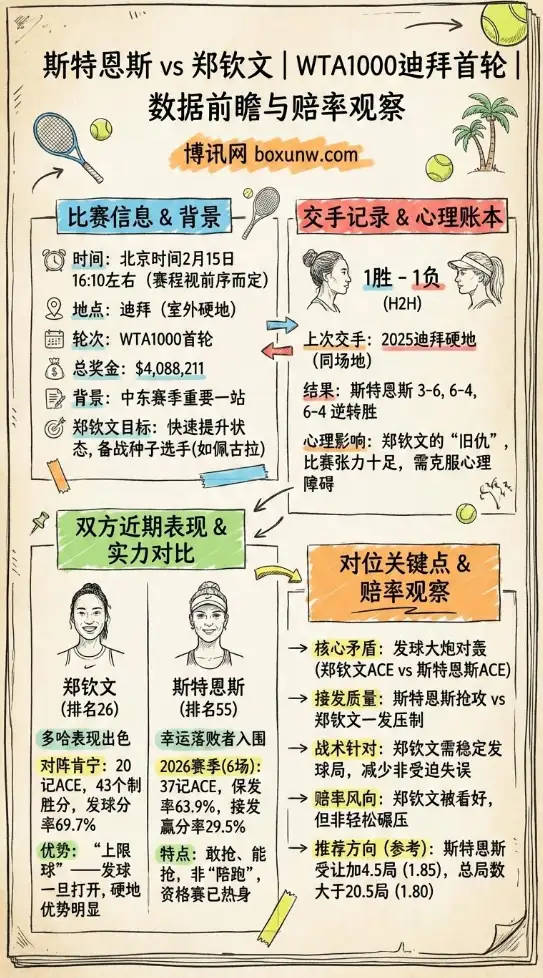 斯特恩斯 vs 郑钦文 | WTA1000迪拜首轮 |
数据前瞻与赔率观察
博讯网 boxunw.com
比赛信息 & 背景
时间：北京时间2月15日
16:10左右（赛程视前序而定）
地点：迪拜（室外硬地）
轮次：WTA1000首轮
总奖金：$4,088,211
背景：中东赛季重要一站
郑钦文目标：快速提升状
态, 备战种子选手(如佩古拉)
交手记录 & 心理账本
1胜 – 1负
(H2H)
上次交手：2025迪拜硬地
（同场地）
结果：斯特恩斯 3-6, 6-4,
6-4 逆转胜
心理影响：郑钦文的“旧仇”，
比赛张力十足，需克服心理
障碍
双方近期表现 &
实力对比
郑钦文
(排名26)
多哈表现出色
对阵肯宁：20
记ACE，43个制
胜分，发球分
率69.7%
优势：“上限
球”——发球
一旦打开, 硬地
优势明显
斯特恩斯
(排名55)
幸运落败者入围
2026赛季(6场)：
37记ACE，保发
率63.9%，接发
赢分率29.5%
特点：敢抢、能
抢，非“陪跑”，
资格赛已热身
对位关键点 &
赔率观察
→ 核心矛盾：发球大炮对轰
(郑钦文ACE vs 斯特恩斯ACE)
→ 接发质量：斯特恩斯抢攻 vs
郑钦文一发压制
→ 战术针对：郑钦文需稳定发
球局，减少非受迫失误
→ 赔率风向：郑钦文被看好，
但非轻松碾压
→ 推荐方向 (参考)：斯特恩斯
受让加4.5局 (1.85)，总局数
大于20.5局 (1.80)